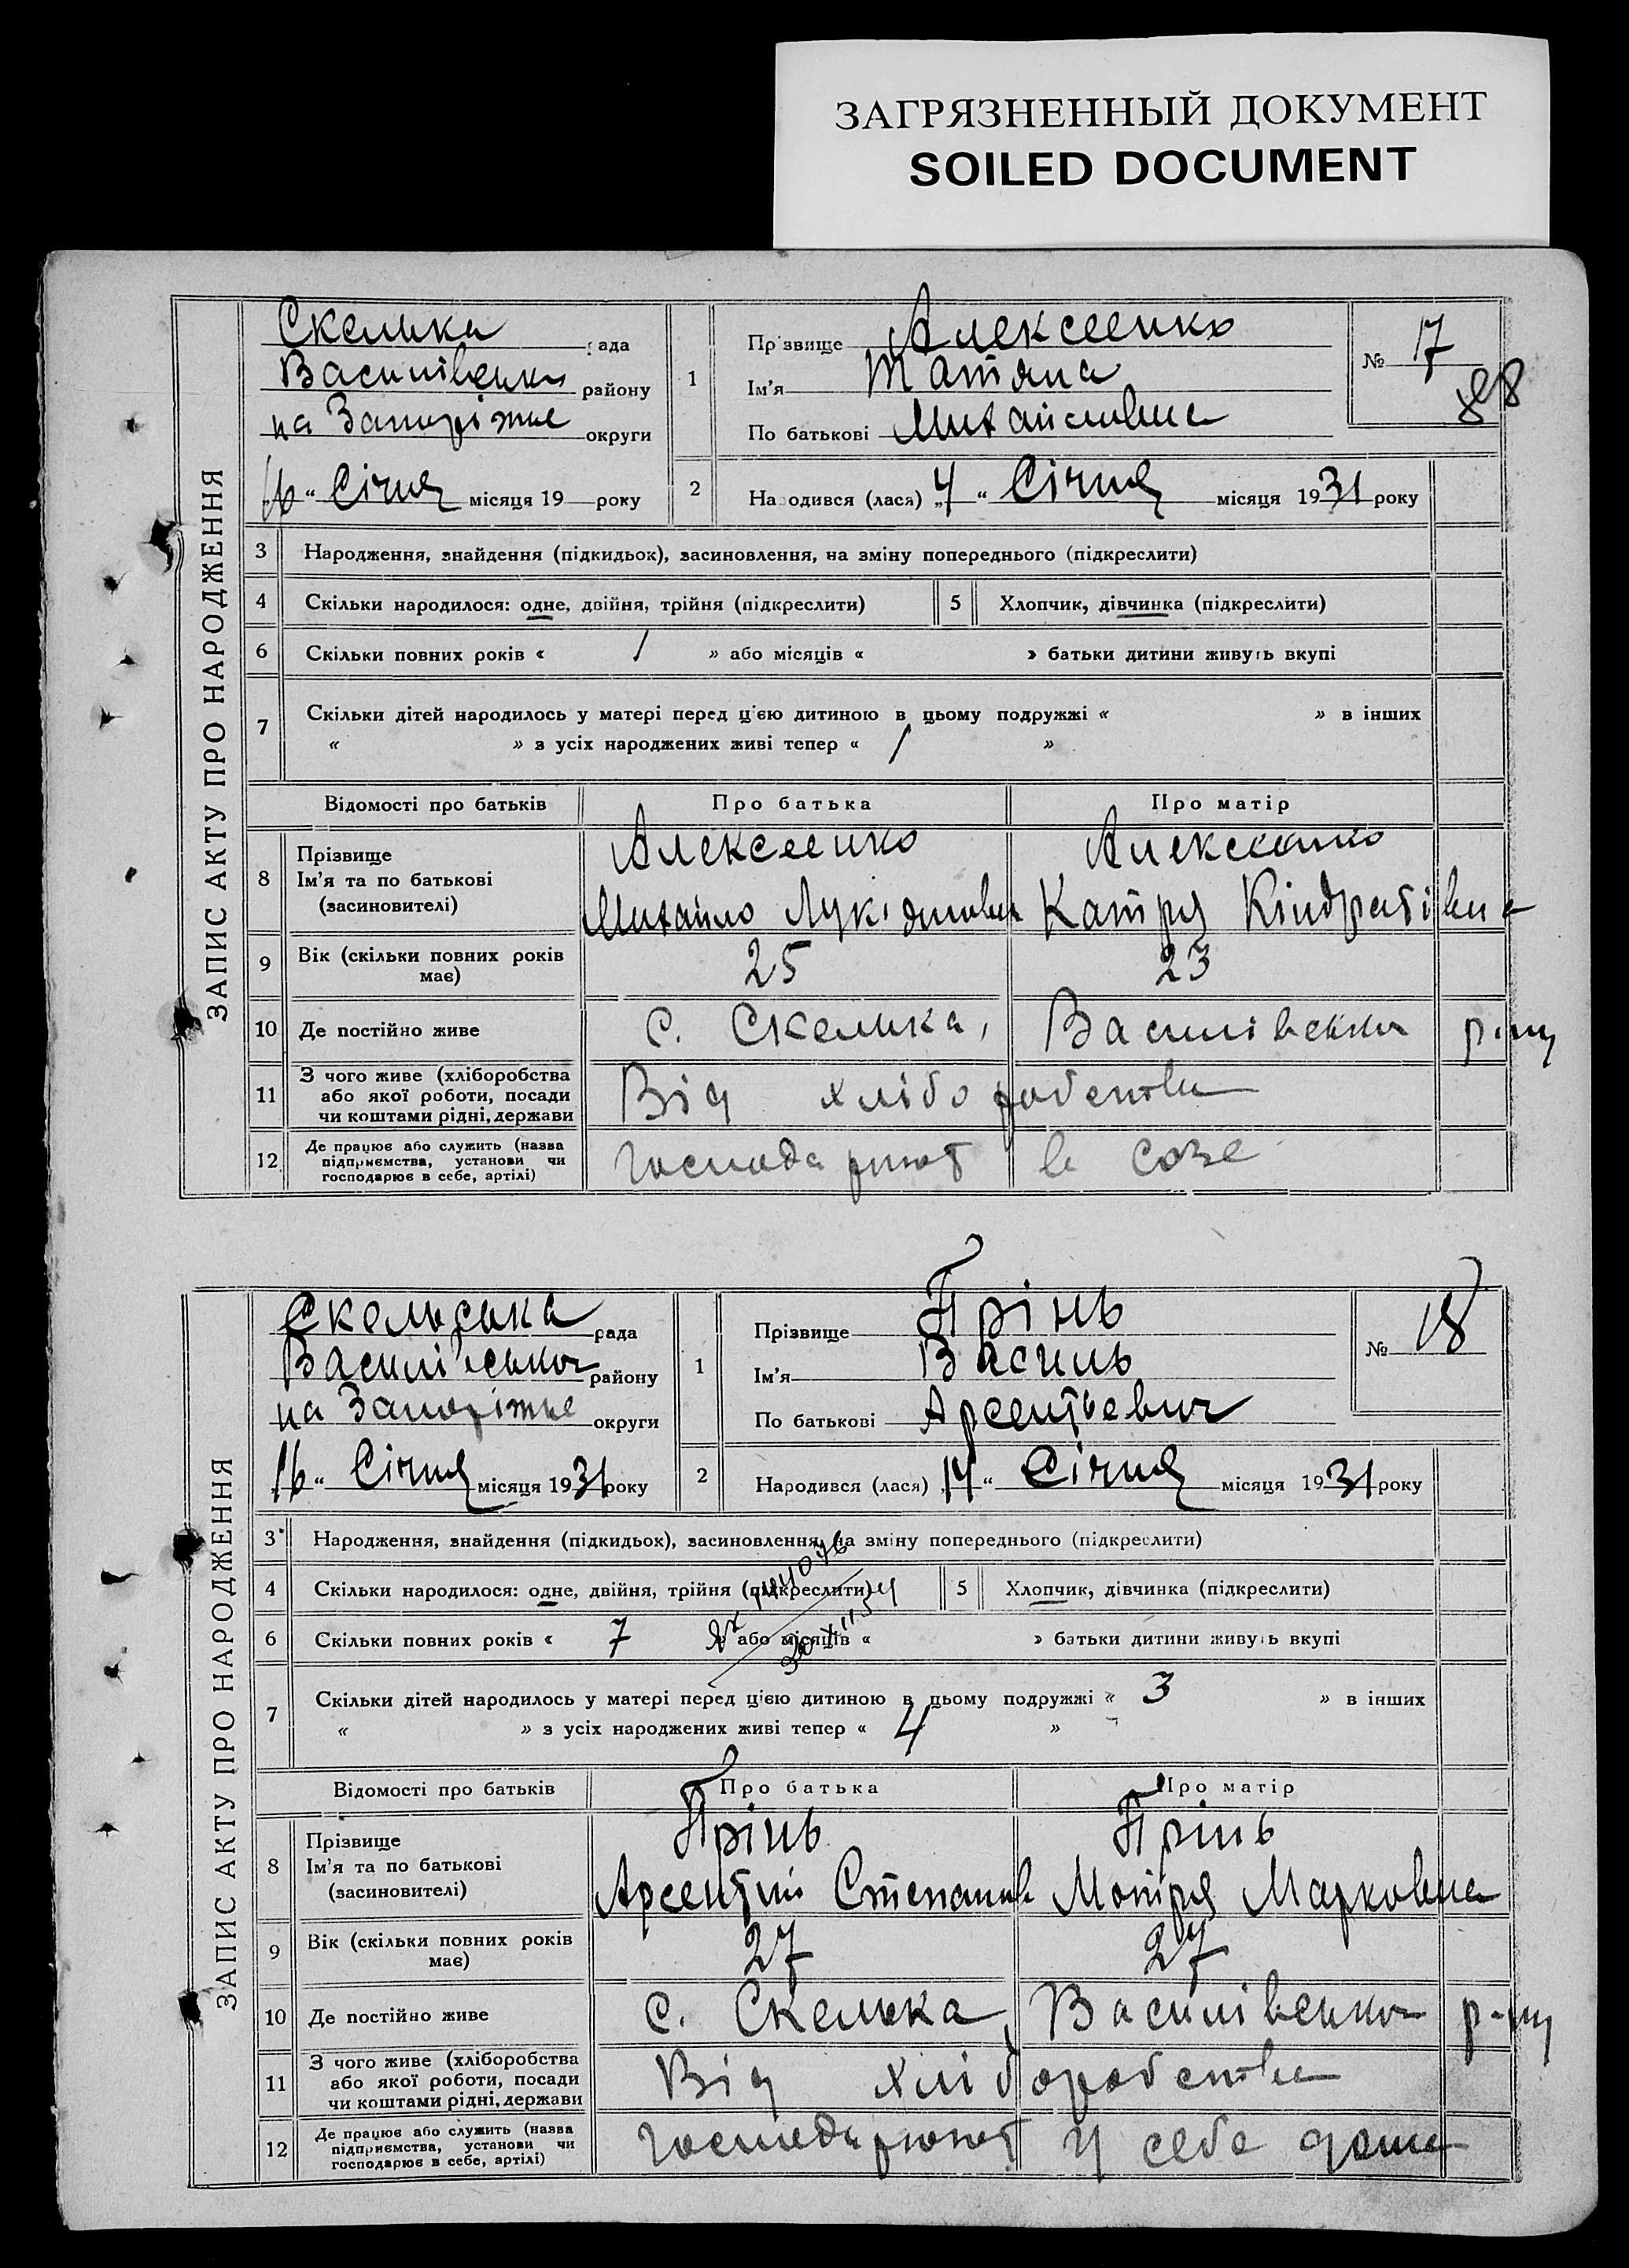 ЗАГРЯЗНЕННЫЙ ДОКУМЕНТ
SOILED DOCUMENT
ЗАПИС АКТУ ПРО НАРОДЖЕННЯ
Скелька рада
Василівськи району
на Запоріжжє округи
16 " Січня місяця 19 року
1
Прізвище Алексеенко
Ім'я Татяна
По батькові Михайловна
№ 17
88
2 Народився (лася) „4" Січня місяця 1931 року
3 Народження, знайдення (підкидьок), засиновлення, на зміну попереднього (підкреслити)
4 Скільки народилося: одне, двійня, трійня (підкреслити) 5 Хлопчик, дівчинка (підкреслити)
6 Скільки повних років « 1 » або місяців « » батьки дитини живуть вкупі
7 Скільки дітей народилось у матері перед цією дитиною в цьому подружжі « » в інших
« » з усіх народжених живі тепер « 1 »
Відомості про батьків Про батька Про матір
8 Прізвище Алексеенко Алексеенко
Ім'я та по батькові
(засновителі) Михайло Катря Кіндратівна
9 Вік (скільки повних років має) 25 23
10 Де постійно живе с. Скелька, Василівськи р-ну
11 З чого живе (хліборобства або якої роботи, посади чи коштами рідні, держави Від хліборобства
12 Де працює або служить (назва підприємства, установи чи господарює в себе, артілі) господарюют в созе
ЗАПИС АКТУ ПРО НАРОДЖЕННЯ
Скельська рада
Василівського району
на Запоріжжє округи
16 " Січня місяця 1931 року
1
Прізвище Прінь
Ім'я Василь
По батькові Арсентьевич
№ 18
2 Народився (лася) „14" Січня місяця 1931 року
3 Народження, знайдення (підкидьок), засиновлення, на зміну попереднього (підкреслити)
4 Скільки народилося: одне, двійня, трійня (підкреслити) 5 Хлопчик, дівчинка (підкреслити)
6 Скільки повних років « 7 » або місяців « » батьки дитини живуть вкупі
7 Скільки дітей народилось у матері перед цією дитиною в цьому подружжі « 3 » в інших
« » з усіх народжених живі тепер « 4 »
Відомості про батьків Про батька Про матір
8 Прізвище Прінь Прінь
Ім'я та по батькові
(засиновителі) Арсентий Степанов Мотря Марковна
9 Вік (скільки повних років має) 27 27
10 Де постійно живе с. Скелька, Василівського р-ну
11 З чого живе (хліборобства або якої роботи, посади чи коштами рідні, держави Від хліборобства
12 Де працює або служить (назва підприємства, установи чи господарює в себе, артілі) господарюют у себе дома